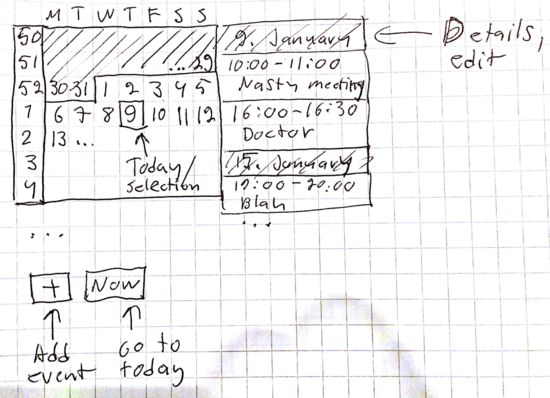 M T W T F S S
50
51 ...29
52 30 31 1 2 3 4 5
1 6 7 8 9 10 11 12
2 13 ...
3
4
...
Today/
selection
9. January
10:00-11:00
Nasty meeting
16:00-16:30
Doctor
January
12:00-20:00
Blah
...
Details,
edit
+
Now
Add
event
Go to
today